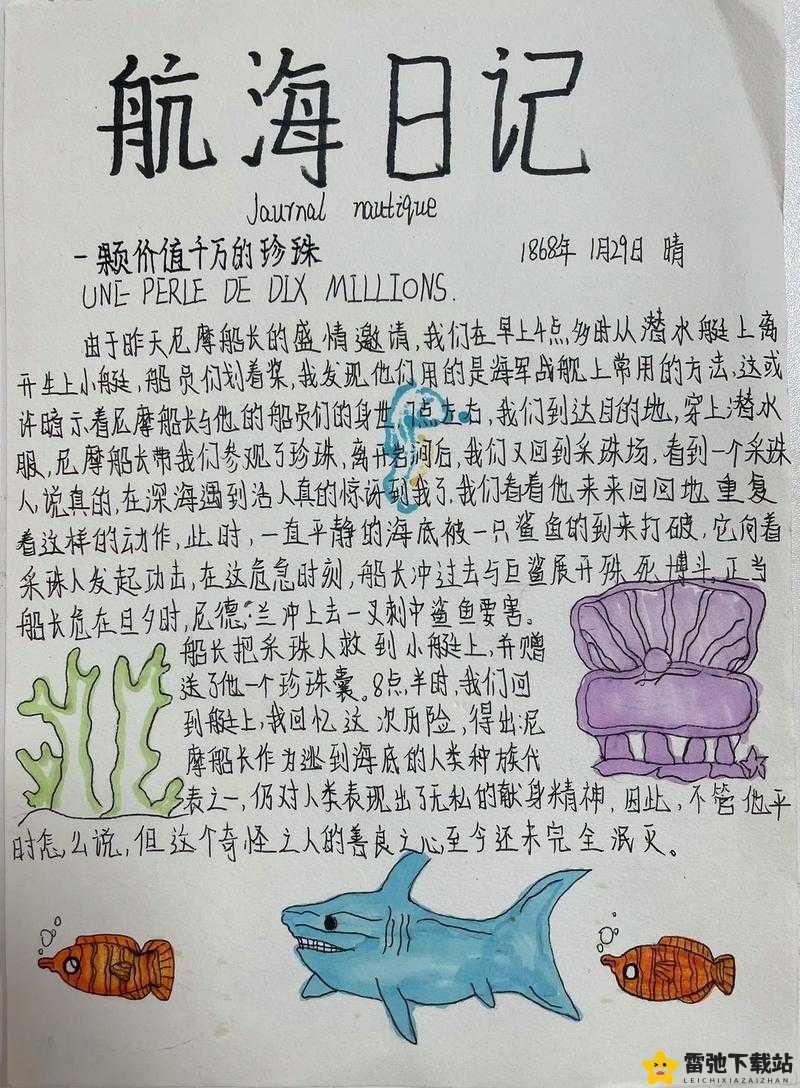 航海日记
Jaurnal nautique
一颗价值千万的珍珠 1868年 1月29日 晴
UNE PERLE DE DIX MILLIONS.
由于昨天尼摩船长的盛情邀请,我们在早上4点多时从潜水艇上离
开坐上小艇,船员们划着桨,我发现他们用的是海军战舰上常用的方法,这或
许暗示着尼摩船长与他的船员们的身世 点左右,我们到达目的地,穿上潜水
服,尼摩船长带我们参观了珍珠,离开岩洞后,我们又回到采珠场,看到一个采珠
人,说真的,在深海遇到活人真的惊讶到我了,我们看着他来来回回地重复
着这样的动作,此时,一直平静的海底被一只鲨鱼的到来打破,它向着
采珠人发起功击,在这危急时刻,船长冲过去与巨鲨展开殊死博斗,正当
船长危在旦夕时,尼德·兰冲上去一叉刺中鲨鱼要害。
船长把采珠人救到小艇上,并赠
送了他一个珍珠囊。8点半时,我们回
到艇上,我回忆这次历险,得出:尼
摩船长作为逃到海底的人类种族代
表之一,仍对人类表现出了无私的献身精神,因此,不管他平
时怎么说,但这个奇怪之人的善良之心至今还未完全泯灭。
雷弛下载站
LEICHIXIAZAIZHAN